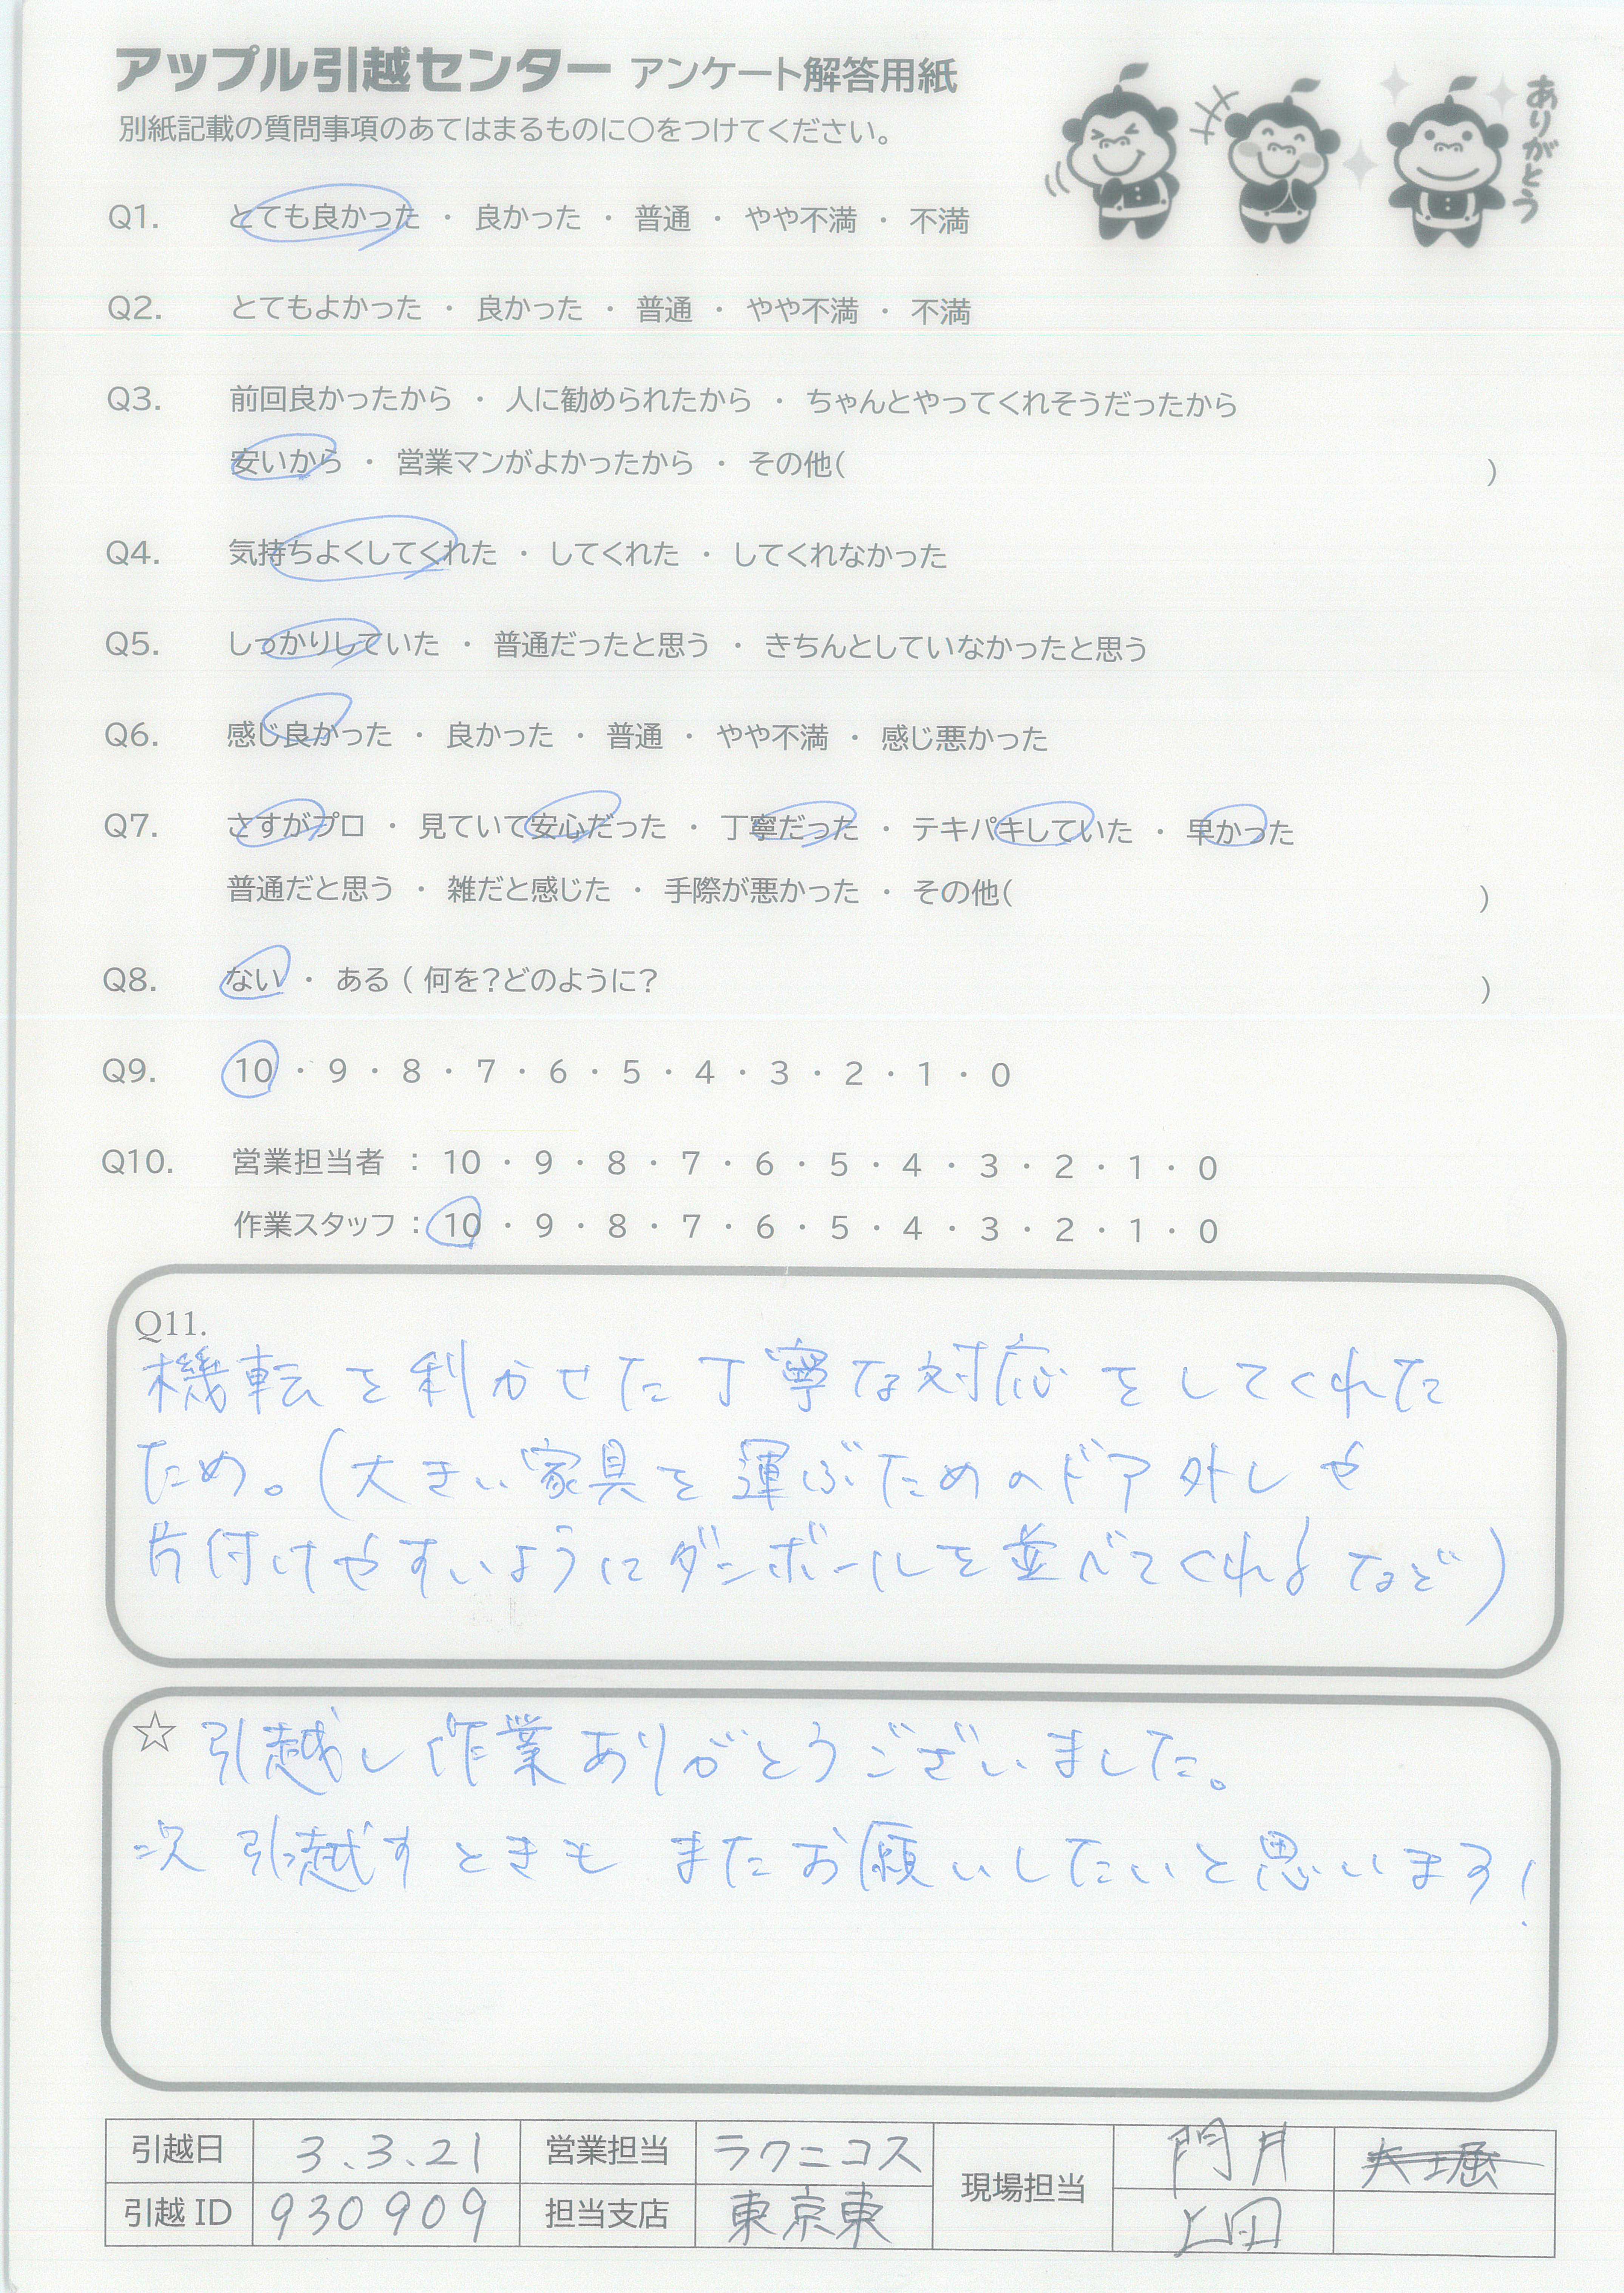 アップル引越センター アンケート解答用紙
別紙記載の質問事項のあてはまるものに○をつけてください。
ありがとう
Q1. とても良かった ・ 良かった ・ 普通 ・ やや不満 ・ 不満
Q2. とてもよかった ・ 良かった ・ 普通 ・ やや不満 ・ 不満
Q3. 前回良かったから ・ 人に勧められたから ・ ちゃんとやってくれそうだったから
安いから ・ 営業マンがよかったから ・ その他( )
Q4. 気持ちよくしてくれた ・ してくれた ・ してくれなかった
Q5. しっかりしていた ・ 普通だったと思う ・ きちんとしていなかったと思う
Q6. 感じ良かった ・ 良かった ・ 普通 ・ やや不満 ・ 感じ悪かった
Q7. さすがプロ ・ 見ていて安心だった ・ 丁寧だった ・ テキパキしていた ・ 早かった
普通だと思う ・ 雑だと感じた ・ 手際が悪かった ・ その他( )
Q8. ない ・ ある ( 何を?どのように? )
Q9. 10 ・ 9 ・ 8 ・ 7 ・ 6 ・ 5 ・ 4 ・ 3 ・ 2 ・ 1 ・ 0
Q10. 営業担当者 : 10 ・ 9 ・ 8 ・ 7 ・ 6 ・ 5 ・ 4 ・ 3 ・ 2 ・ 1 ・ 0
作業スタッフ : 10 ・ 9 ・ 8 ・ 7 ・ 6 ・ 5 ・ 4 ・ 3 ・ 2 ・ 1 ・ 0
Q11.
機転を利かせた丁寧な対応をしてくれた
ため。(大きい家具を運ぶためのドア外しや
片付けやすいようにダンボールを並べてくれるなど)
☆ 引越し作業ありがとうございました。
次引越すときもまたお願いしたいと思います!
引越日 3.3.21 営業担当 ラクニコス 現場担当 門井 大堀
引越ID 930909 担当支店 東京東 上田